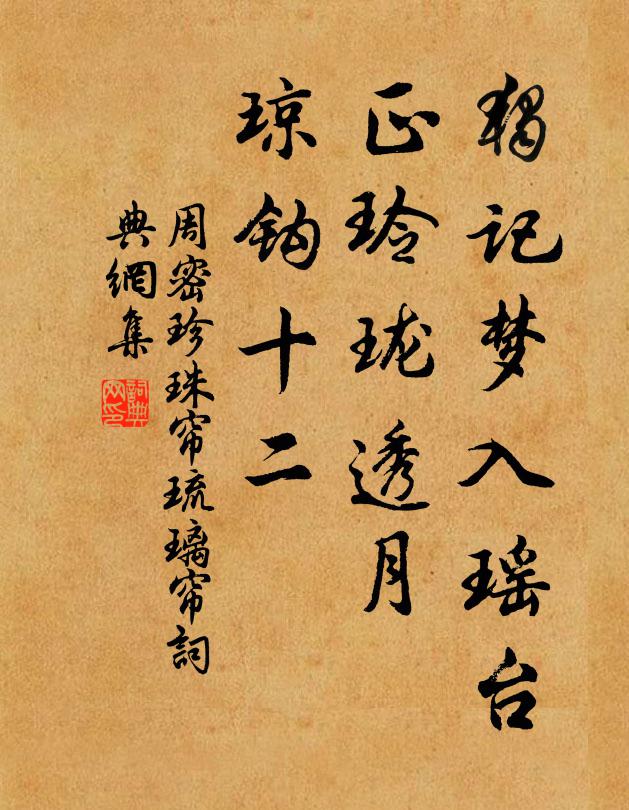 獨记梦入瑶台
正玲珑透月
琼钩十二
周密珍珠帘琉璃帘詞
典網集
詞典
网印